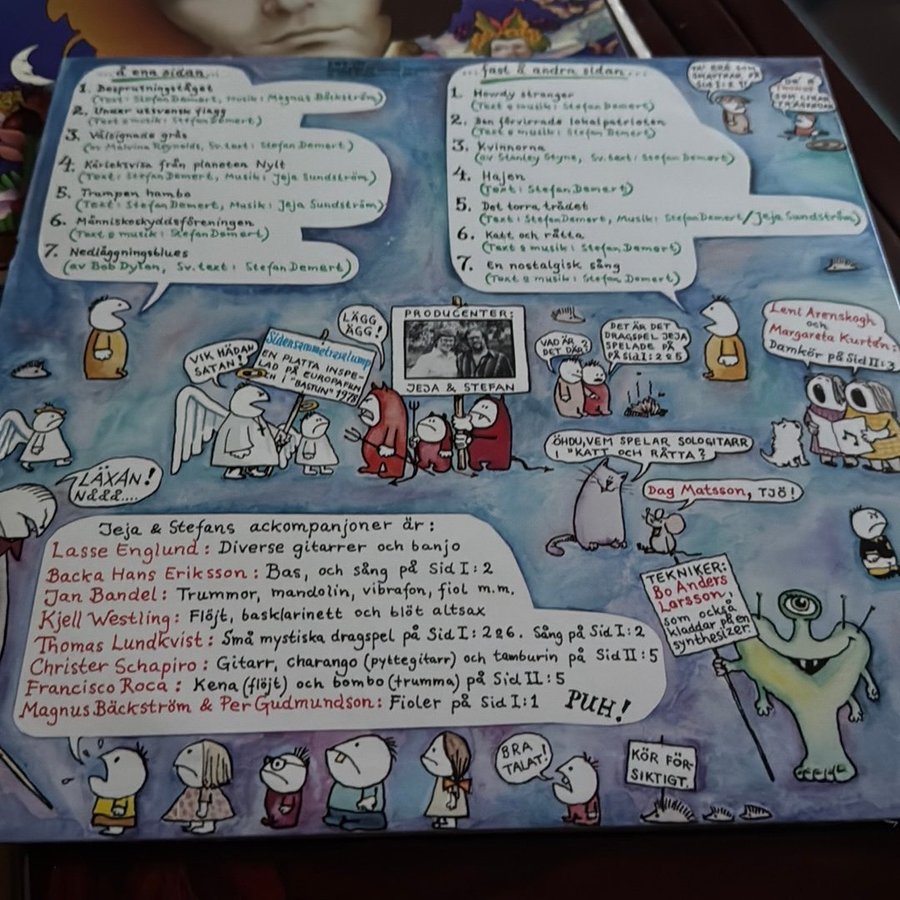 ...å ena sidan...
1. Besprutningståget
(Text: Stefan Demert, Musik: Magnus Bäckström)
2. Under utsvensk flagg
(Text & musik: Stefan Demert)
3. Välsignade gräs
(av Malvina Reynolds, Sv. text: Stefan Demert)
4. Kärleksvisa från planeten Nylt
(Text: Stefan Demert, Musik: Jeja Sundström)
5. Trumpen hambo
(Text: Stefan Demert, Musik: Jeja Sundström)
6. Människoskyddsföreningen
(Text & musik: Stefan Demert)
7. Nedläggningsblues
(av Bob Dylan, Sv. text: Stefan Demert)
...fast å andra sidan...
1. Howdy stranger
(Text & musik: Stefan Demert)
2. Den förvirrade lokalpatrioten
(Text & musik: Stefan Demert)
3. Kvinnorna
(av Stanley Styne, Sv. text: Stefan Demert)
4. Hajen
(Text: Stefan Demert)
5. Det torra trädet
(Text: Stefan Demert, Musik: Stefan Demert/Jeja Sundström)
6. Katt och råtta
(Text & musik: Stefan Demert)
7. En nostalgisk sång
(Text & musik: Stefan Demert)
SOM
PÅ
SID I:2
SOM
VIK HÄDAN
SATAN!
Sidensammetreselump
EN PLATTA INSPE-
LAD PÅ EUROPAFILM
OCH I "BASTUN" 1978
LÄGG
ÄGG!
PRODUCENTER:
JEJA & STEFAN
VAD ÄR
DET DÄR?
DET ÄR DET
DRAGSPEL JEJA
SPELADE PÅ
PÅ Sid I:2&5
Leni Arenskogh
och
Margareta Kurtén:
Damkör på Sid II:3
LÄXAN!
Nååå....
ÖHDU, VEM SPELAR SOLOGITARR
I "KATT OCH RÅTTA?
Dag Matsson, TJÖ!
Jeja & Stefans ackompanjoner är:
Lasse Englund: Diverse gitarrer och banjo
Backa Hans Eriksson: Bas, och sång på Sid I:2
Jan Bandel: Trummor, mandolin, vibrafon, fiol m.m.
Kjell Westling: Flöjt, basklarinett och blöt altsax
Thomas Lundkvist: Små mystiska dragspel på Sid I:2&6. Sång på Sid I:2
Christer Schapiro: Gitarr, charango (pyttegitarr) och tamburin på Sid II:5
Francisco Roca: Kena (flöjt) och bombo (trumma) på Sid II:5
Magnus Bäckström & Per Gudmundson: Fioler på Sid I:1
PUH!
TEKNIKER:
Bo Anders
Larsson,
som också
kladdar på en
synthesizer.
BRA
TALAT!
KÖR FÖR-
SIKTIGT.